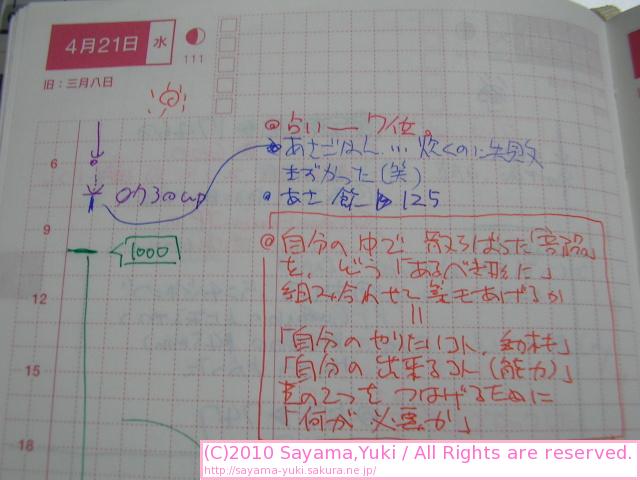 4月21日 水
111
旧:三月八日
占い ― 7位。
あさごはん… 炊くのに失敗
まずかった(笑)
あさ 125
6
07300up
9
1000
12
15
18
自分の中で 散らばった「
を、どう「あるべき形に」
組み合わせて
「自分のやりたいコト、
「自分の出来るコト(能力)」
の2つを つなげるために
「何が必要か」
(C)2010 Sayama,Yuki / All Rights are reserved.
http://sayama-yuki.sakura.ne.jp/